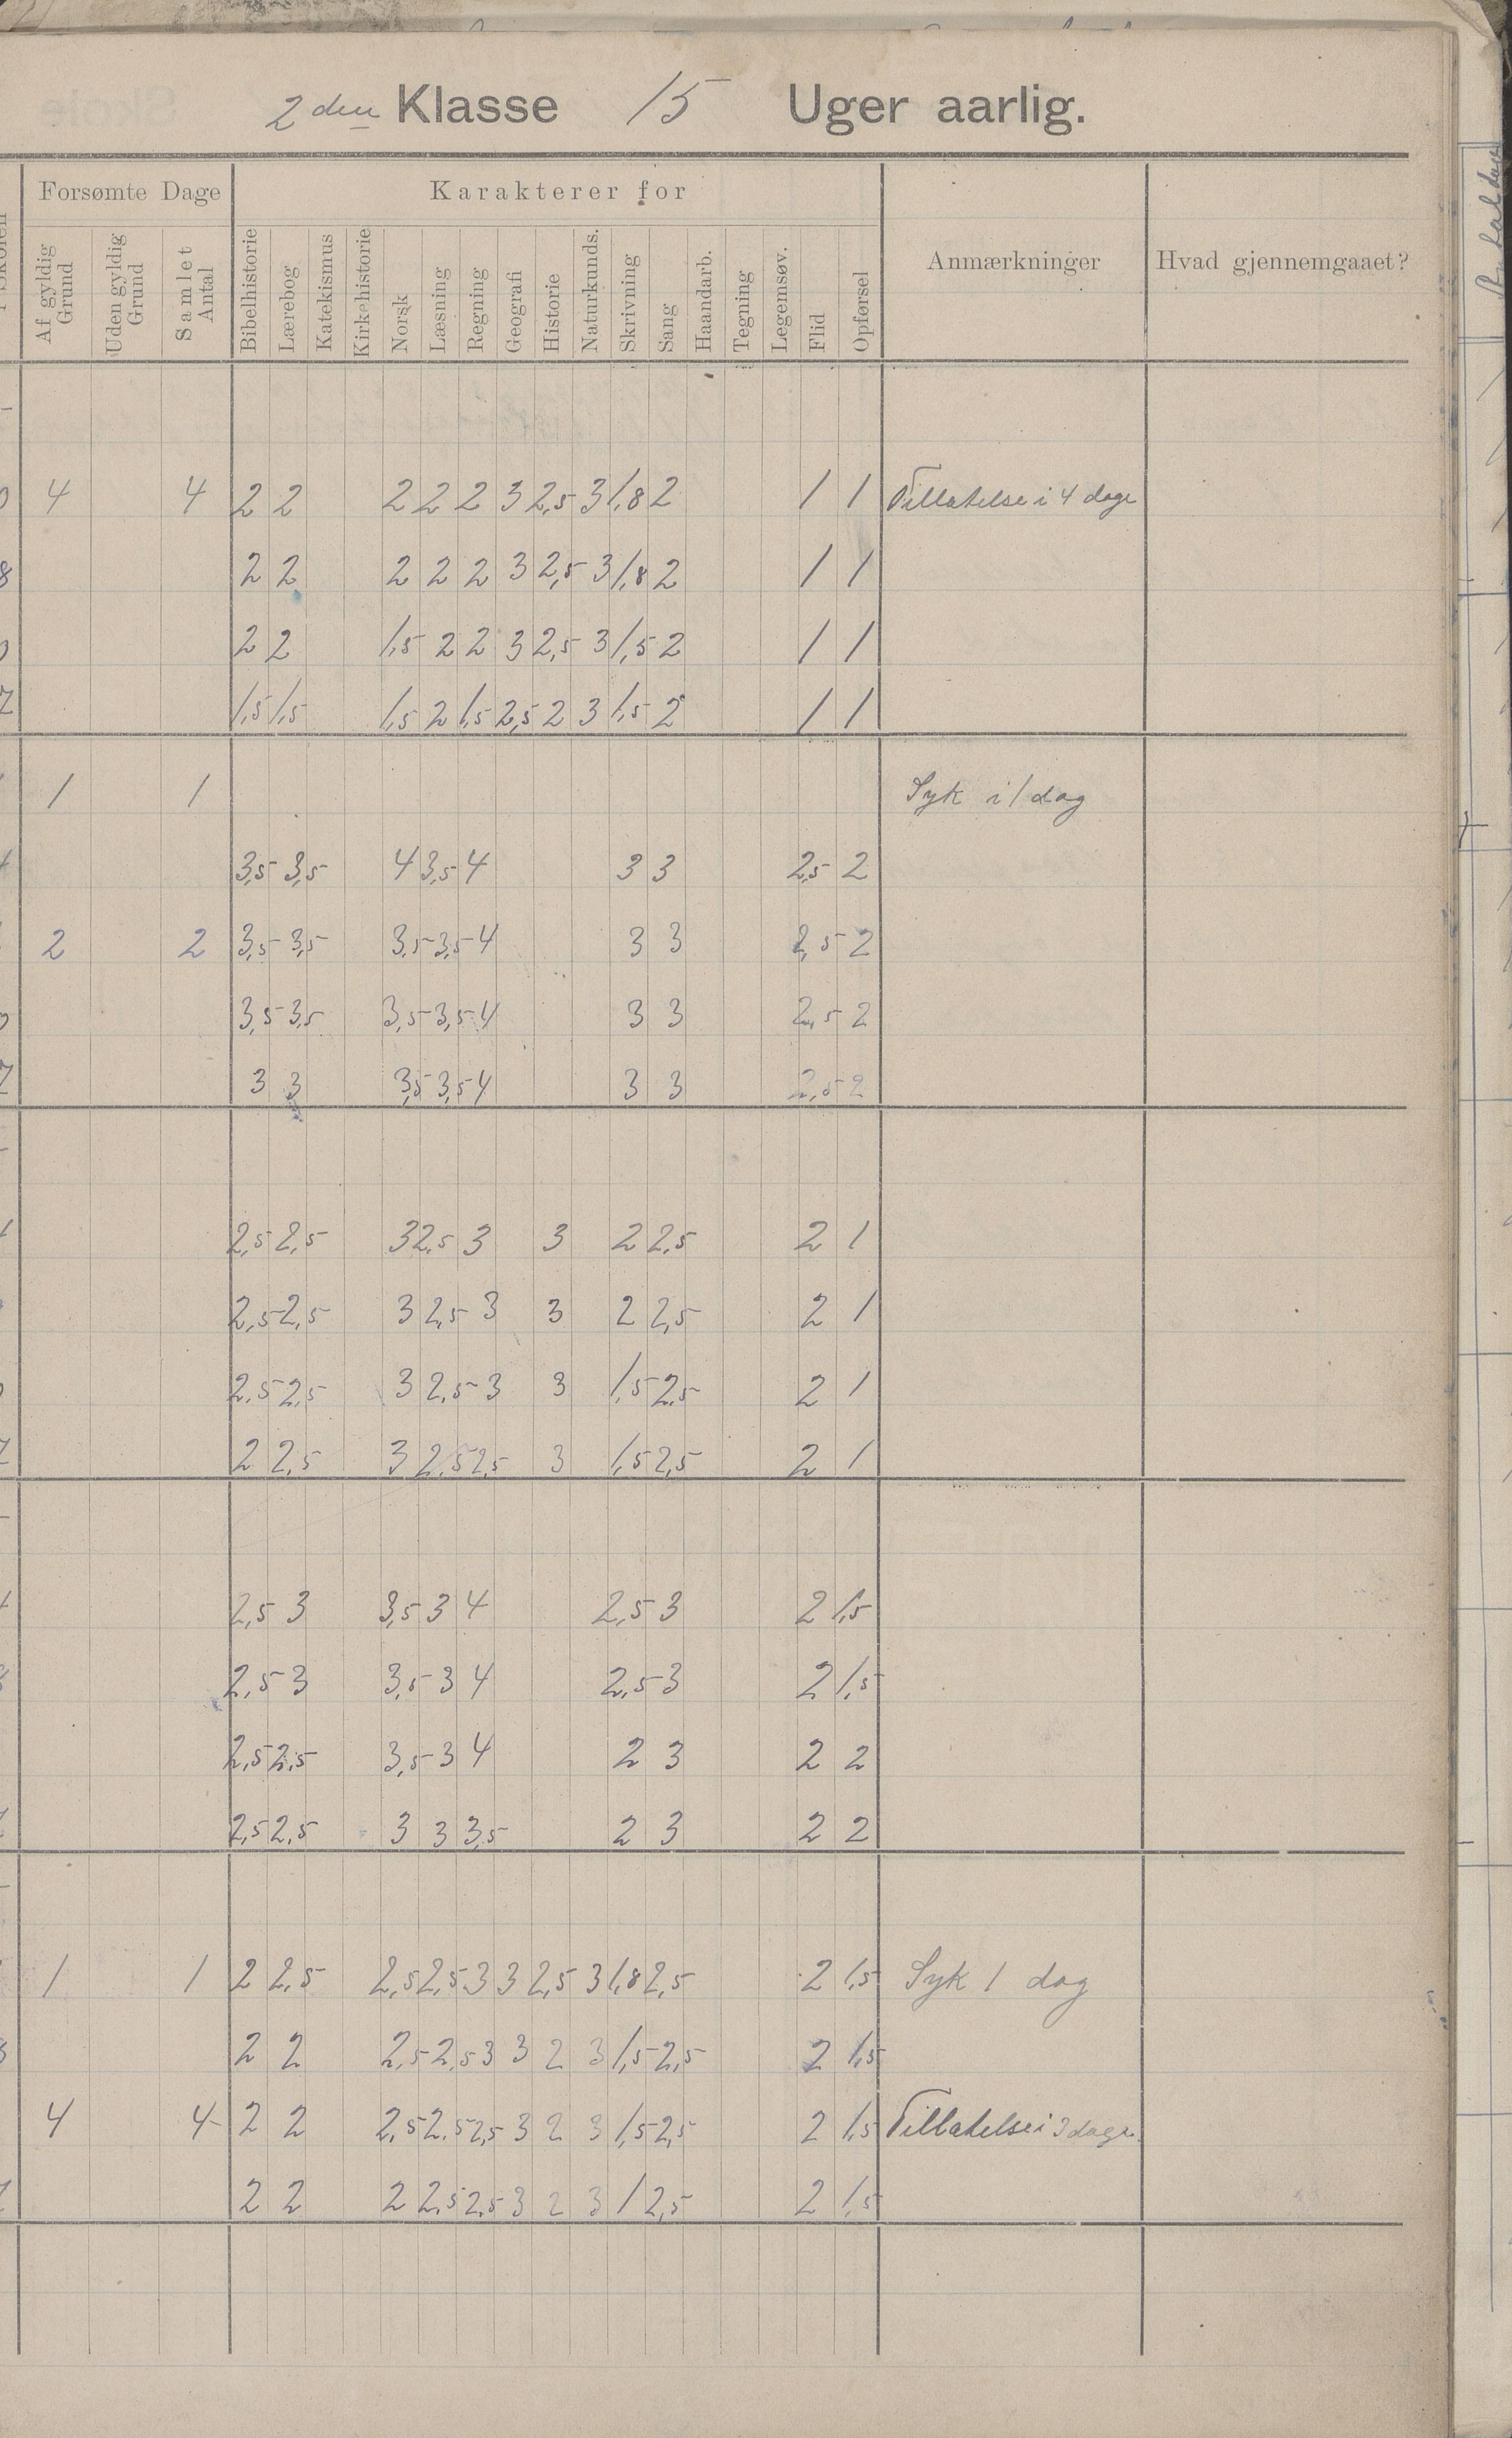 2den Klasse 15 Uger aarlig.
Forsømte Dage Karakterer for
Af gyldig Grund Uden gyldig Grund Samlet Antal Bibelhistorie Lærebog Katekismus Kirkehistorie Norsk Læsning Regning Geografi Historie Naturkunds. Skrivning Sang Haandarb. Tegning Legemsøv. Flid Opførsel Anmærkninger Hvad gjennemgaaet?
4 4 2 2 2 2 2 3 2,5 3 1,8 2 1 1 Tillatelse i 4 dage
2 2 2 2 2 3 2,5 3 1,8 2 1 1
2 2 1,5 2 2 3 2,5 3 1,5 2 1 1
1,5 1,5 1,5 2 1,5 2,5 2 3 1,5 2 1 1
1 1 Syk i 1 dag
3,5 3,5 4 3,5 4 3 3 2,5 2
2 2 3,5 3,5 3,5 3,5 4 3 3 2,5 2
3,5 3,5 3,5 3,5 4 3 3 2,5 2
3 3 3,5 3,5 4 3 3 2,5 2
2,5 2,5 3 2,5 3 3 2 2,5 2 1
2,5 2,5 3 2,5 3 3 2 2,5 2 1
2,5 2,5 3 2,5 3 3 1,5 2,5 2 1
2 2,5 3 2,5 2,5 3 1,5 2,5 2 1
2,5 3 3,5 3 4 2,5 3 2 1,5
2,5 3 3,5 3 4 2,5 3 2 1,5
2,5 2,5 3,5 3 4 2 3 2 2
2,5 2,5 3 3 3,5 2 3 2 2
1 1 2 2,5 2,5 2,5 3 3 2,5 3 1,8 2,5 2 1,5 Syk 1 dag
2 2 2,5 2,5 3 3 2 3 1,5 2,5 2 1,5
4 4 2 2 2,5 2,5 2,5 3 2 3 1,5 2,5 2 1,5 Tillatelse i 3 dage.
2 2 2 2,5 2,5 3 2 3 1 2,5 2 1,5